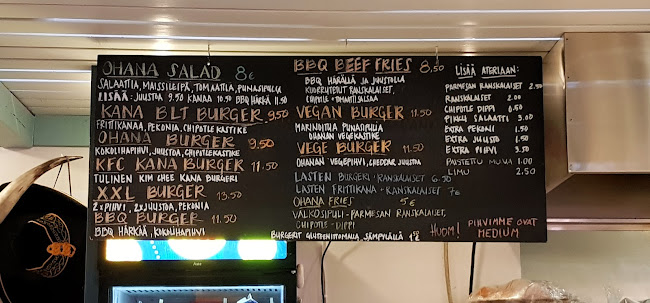 OHANA SALAD 8€
SALAATIA, MAISSILEIPÄ, TOMAATTIA, PUNASIPULIA
LISÄÄ: JUUSTOA 9.50 KANAA 10.50 BBQ HÄRKÄ 11.50
KANA BLT BURGER 9.50
FRITTIKANAA, PEKONIA, CHIPOTLEKASTIKE
OHANA BURGER 9.50
KOKOLIHAPIHVI, JUUSTOA, CHIPOTLEKASTIKE
KFC KANA BURGER 11.50
TULINEN KIM CHEE KANA BURGERI
XXL BURGER 13.50
2x PIHVI, 2x JUUSTOA, PEKONIA
BBQ BURGER 11.50
BBQ HÄRKÄÄ, KOKOLIHAPIHVI
BBQ BEEF FRIES 8,50
BBQ HÄRÄLLÄ JA JUUSTOLLA
KUORRUTETUT RANSKALAISET,
CHIPOTLE - TOMAATTISALSA
VEGAN BURGER 11.50
MARINOITUA PUNASIPULIA
OHANAN VEGEKASTIKE
VEGE BURGER 11.50
OHANAN VEGEPIHVI, CHEDDAR JUUSTOA
LASTEN BURGERI + RANSKALAISET 6.50
LASTEN FRITTIKANA + RANSKALAISET 7€
OHANA FRIES 5€
VALKOSIPULI - PARMESAN RANSKALAISET,
CHIPOTLE - DIPPI
BURGERIT GLUTEENITTOMALLA SÄMPYLÄLLÄ
LISÄÄ ATERIAAN:
PARMESAN RANSKALAISET 2.50
RANSKALAISET 2.00
CHIPOTLE DIPPI 0.50
PIKKU SALAATTI 3.00
EXTRA PEKONI 1.50
EXTRA JUUSTO 1.50
EXTRA PIHVI 3.50
PAISTETTU MUNA 1.00
LIMU 2.50
HUOM! PIHVIMME OVAT
MEDIUM